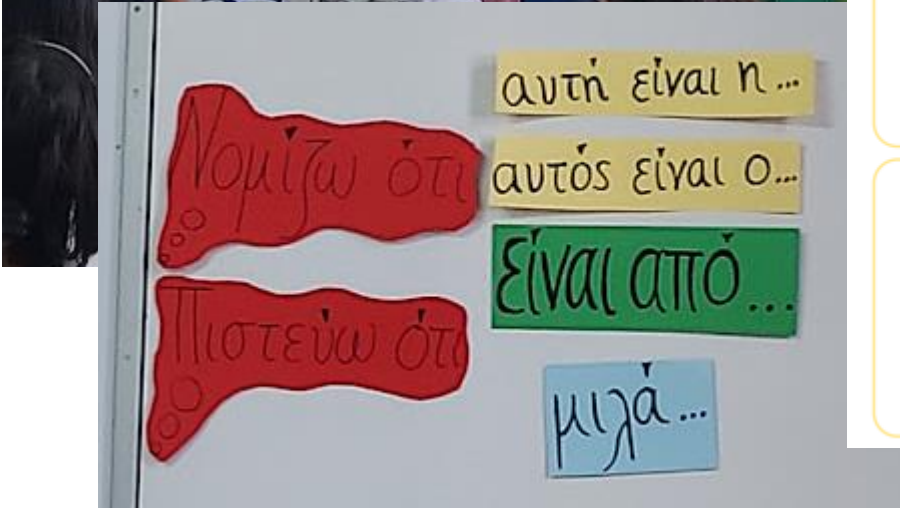 Νομίζω ότι
Πιστεύω ότι
αυτή είναι η...
αυτός είναι ο...
είναι από...
μιλά...